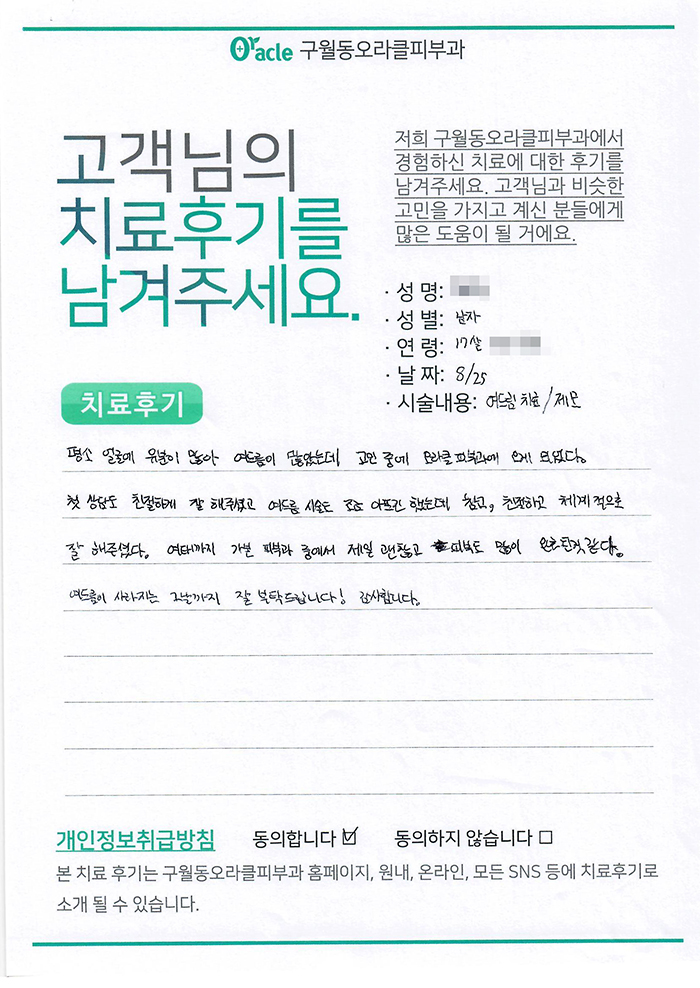 Oracle 구월동오라클피부과
고객님의
치료후기를
남겨주세요.
저희 구월동오라클피부과에서
경험하신 치료에 대한 후기를
남겨주세요. 고객님과 비슷한
고민을 가지고 계신 분들에게
많은 도움이 될 거에요.
· 성 명:
· 성 별: 남자
· 연 령: 17살
· 날 짜: 8/25
· 시술내용: 여드름 치료/제모
치료후기
평소 얼굴에 유분이 많아 여드름이 많았는데 고민 중에 오라클 피부과에 오게 되었다.
첫 상담도 친절하게 잘 해주셨고 여드름 시술도 조금 아프긴 했는데 참고, 친절하고 체계적으로
잘 해준셨다. 여태까지 가본 피부과 중에서 제일 괜찮고 피부도 많이 완화된것 같다.
여드름이 사라지는 그날까지 잘 부탁드립니다! 감사합니다.
개인정보취급방침 동의합니다 ☑ 동의하지 않습니다 □
본 치료 후기는 구월동오라클피부과 홈페이지, 원내, 온라인, 모든 SNS 등에 치료후기로
소개 될 수 있습니다.